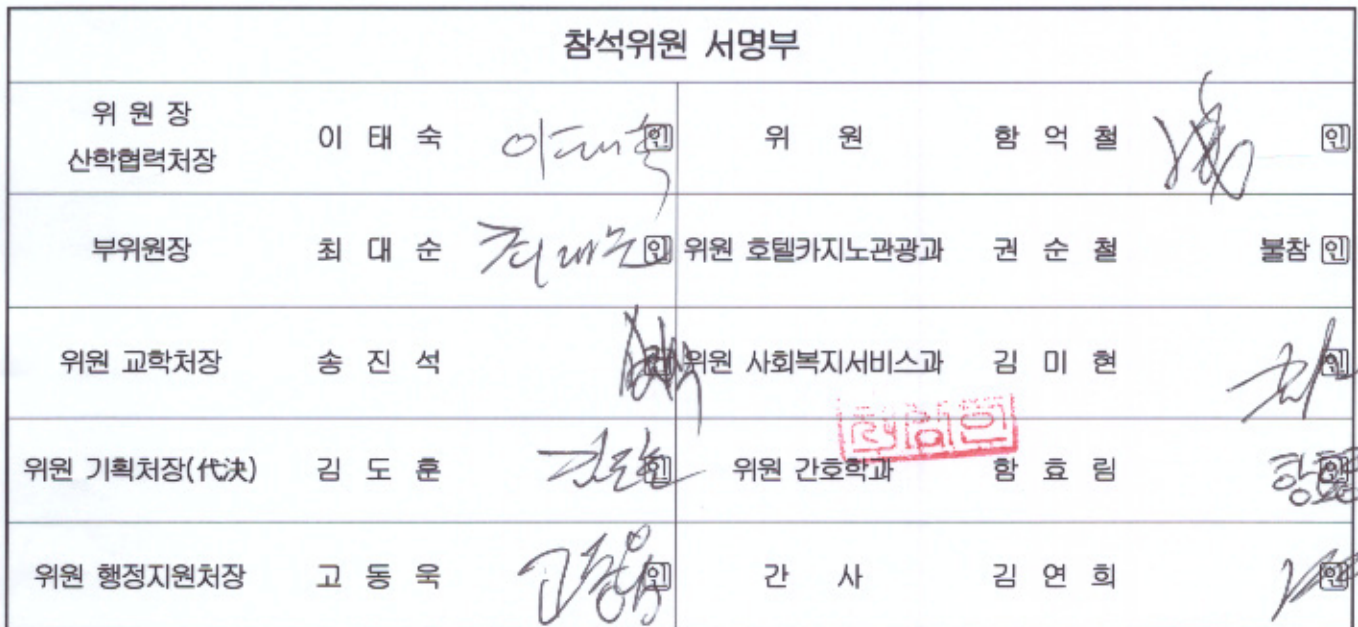 참석위원 서명부
위 원 장
산학협력처장 이 태 숙 이태숙 인 위 원 함 억 철 인
부위원장 최 대 순 최대순 인 위원 호텔카지노관광과 권 순 철 불참 인
위원 교학처장 송 진 석 위원 사회복지서비스과 김 미 현 인
위원 기획처장(代決) 김 도 훈 인 위원 간호학과 함 효 림 인
위원 행정지원처장 고 동 욱 고동욱 인 간 사 김 연 희 인